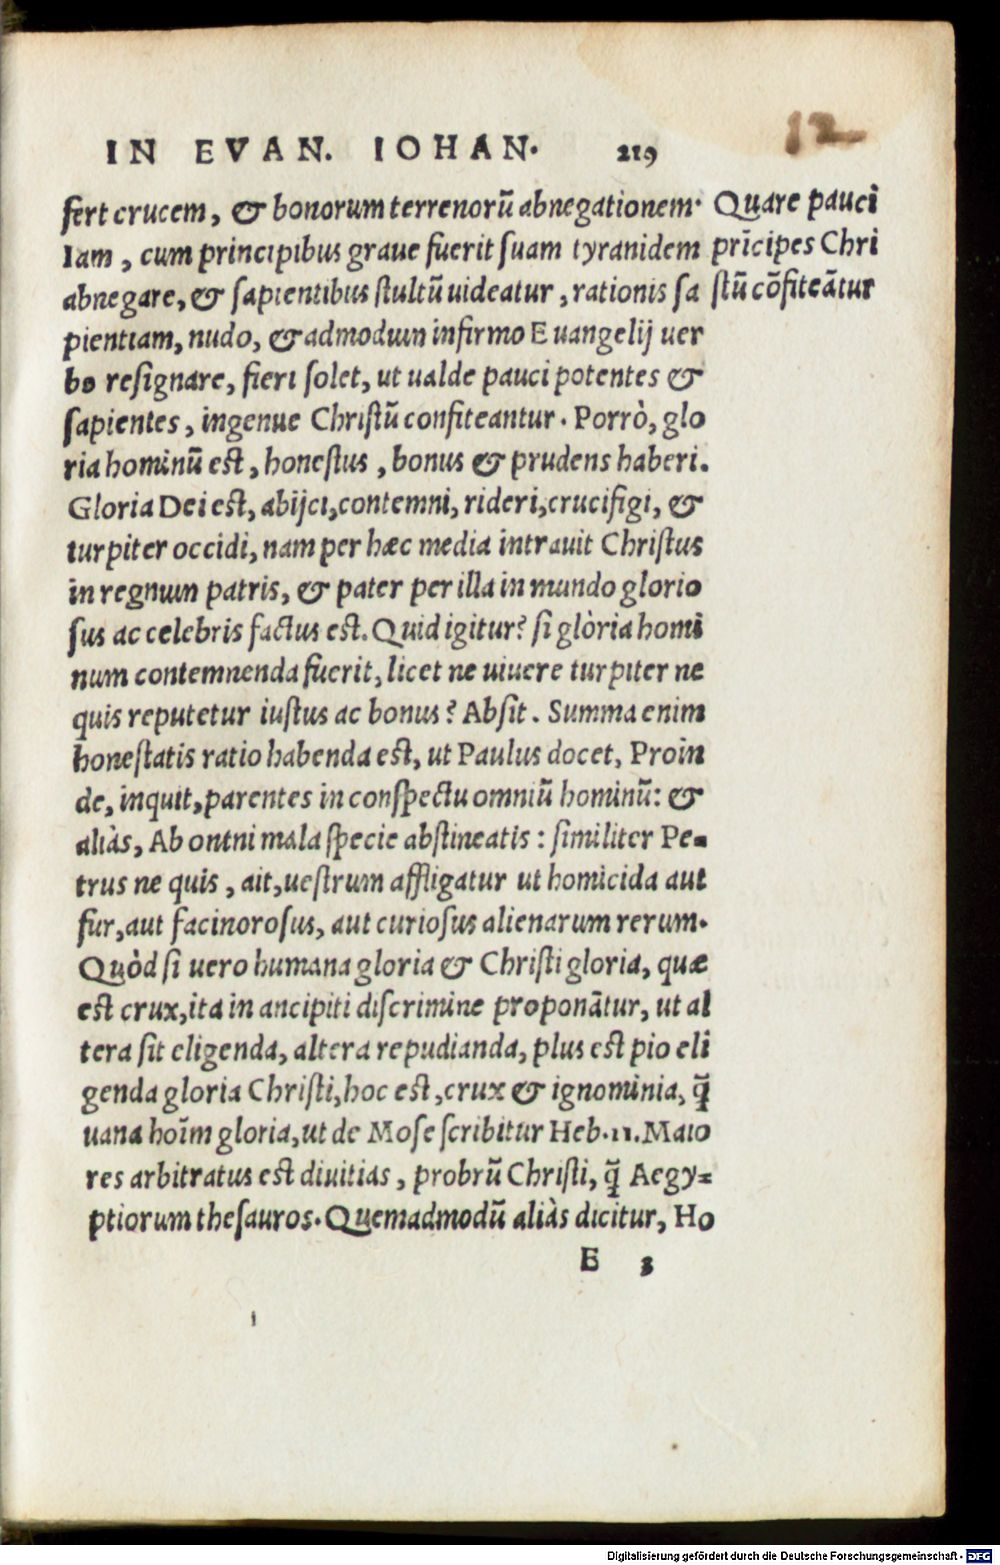 IN EVAN. IOHAN. 219
12
fert crucem, & bonorum terrenorũ abnegationem.
Iam, cum principibus graue fuerit suam tyranidem
abnegare, & sapientibus stultũ uideatur, rationis sa
pientiam, nudo, & admodum infirmo Euangelij uer
bo resignare, fieri solet, ut ualde pauci potentes &
sapientes, ingenue Christũ confiteantur. Porrò, glo
ria hominũ est, honestus, bonus & prudens haberi.
Gloria Dei est, abijci, contemni, rideri, crucifigi, &
turpiter occidi, nam per hæc media intrauit Christus
in regnum patris, & pater per illa in mundo glorio
sus ac celebris factus est. Quid igitur? si glòria homi
num contemnenda fuerit, licet ne uiuere turpiter ne
quis reputetur iustus ac bonus? Absit. Summa enim
honestatis ratio habenda est, ut Paulus docet, Proin
de, inquit, parentes in conspectu omniũ hominũ: &
aliàs, Ab omni mala specie abstineatis: similiter Pe-
trus ne quis, ait, uestrum affligatur ut homicida aut
fur, aut facinorosus, aut curiosus alienarum rerum.
Quòd si uero humana gloria & Christi gloria, quæ
est crux, ita in ancipiti discrimine proponãtur, ut al
tera sit eligenda, altera repudianda, plus est pio eli
genda gloria Christi, hoc est, crux & ignominia, q̃
uana hoĩm gloria, ut de Mose scribitur Heb. 11. Maio
res arbitratus est diuitias, probrũ Christi, q̃ Aegy=
ptiorum thesauros. Quemadmodũ aliàs dicitur, Ho
E 3
Quare pauci
prĩcipes Chri
stũ cõfiteãtur
Digitalisierung gefördert durch die Deutsche Forschungsgemeinschaft - DFG